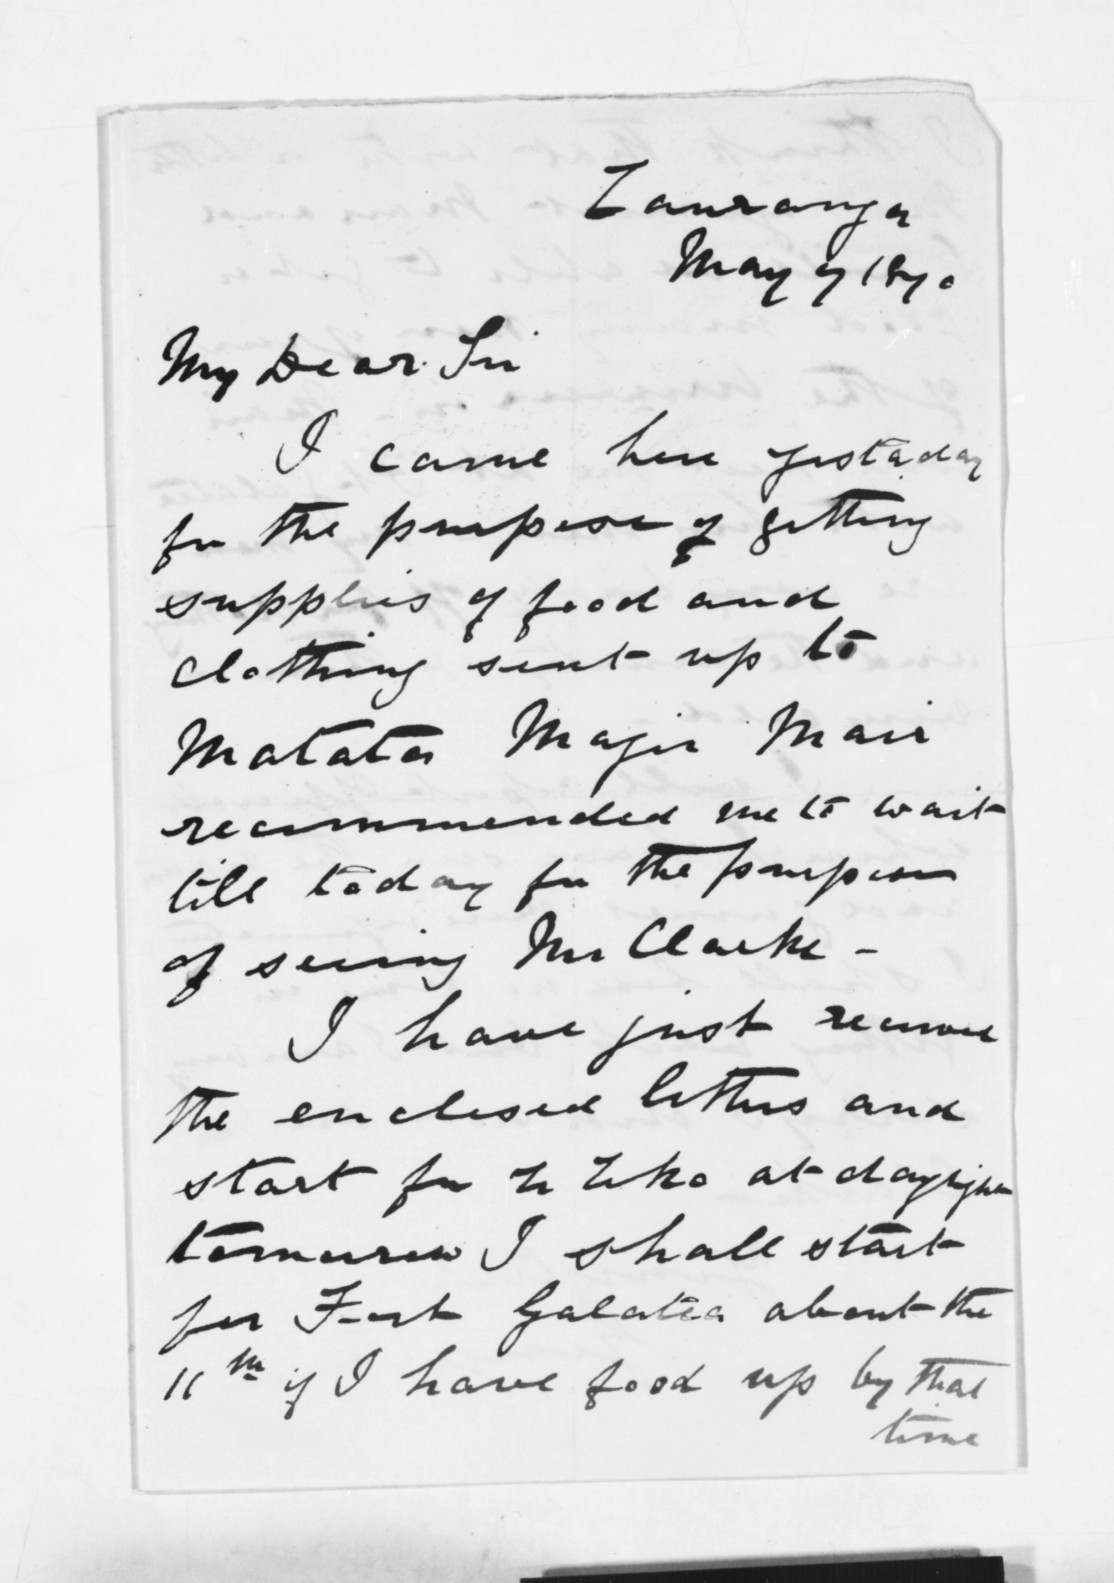 Tauranga
May 7 1870
My Dear Sir
I came here yestaday
for the purpose of getting
supplies of food and
clothing sent up to
Matata Major Mair
recommended me to wait
till today for the purpose
of seeing Mr Clarke -
I have just received
the enclosed letters and
start for Te Teko at daylight
tomorrow I shall start
for Fort Galatea about the
11th if I have food up by that
time